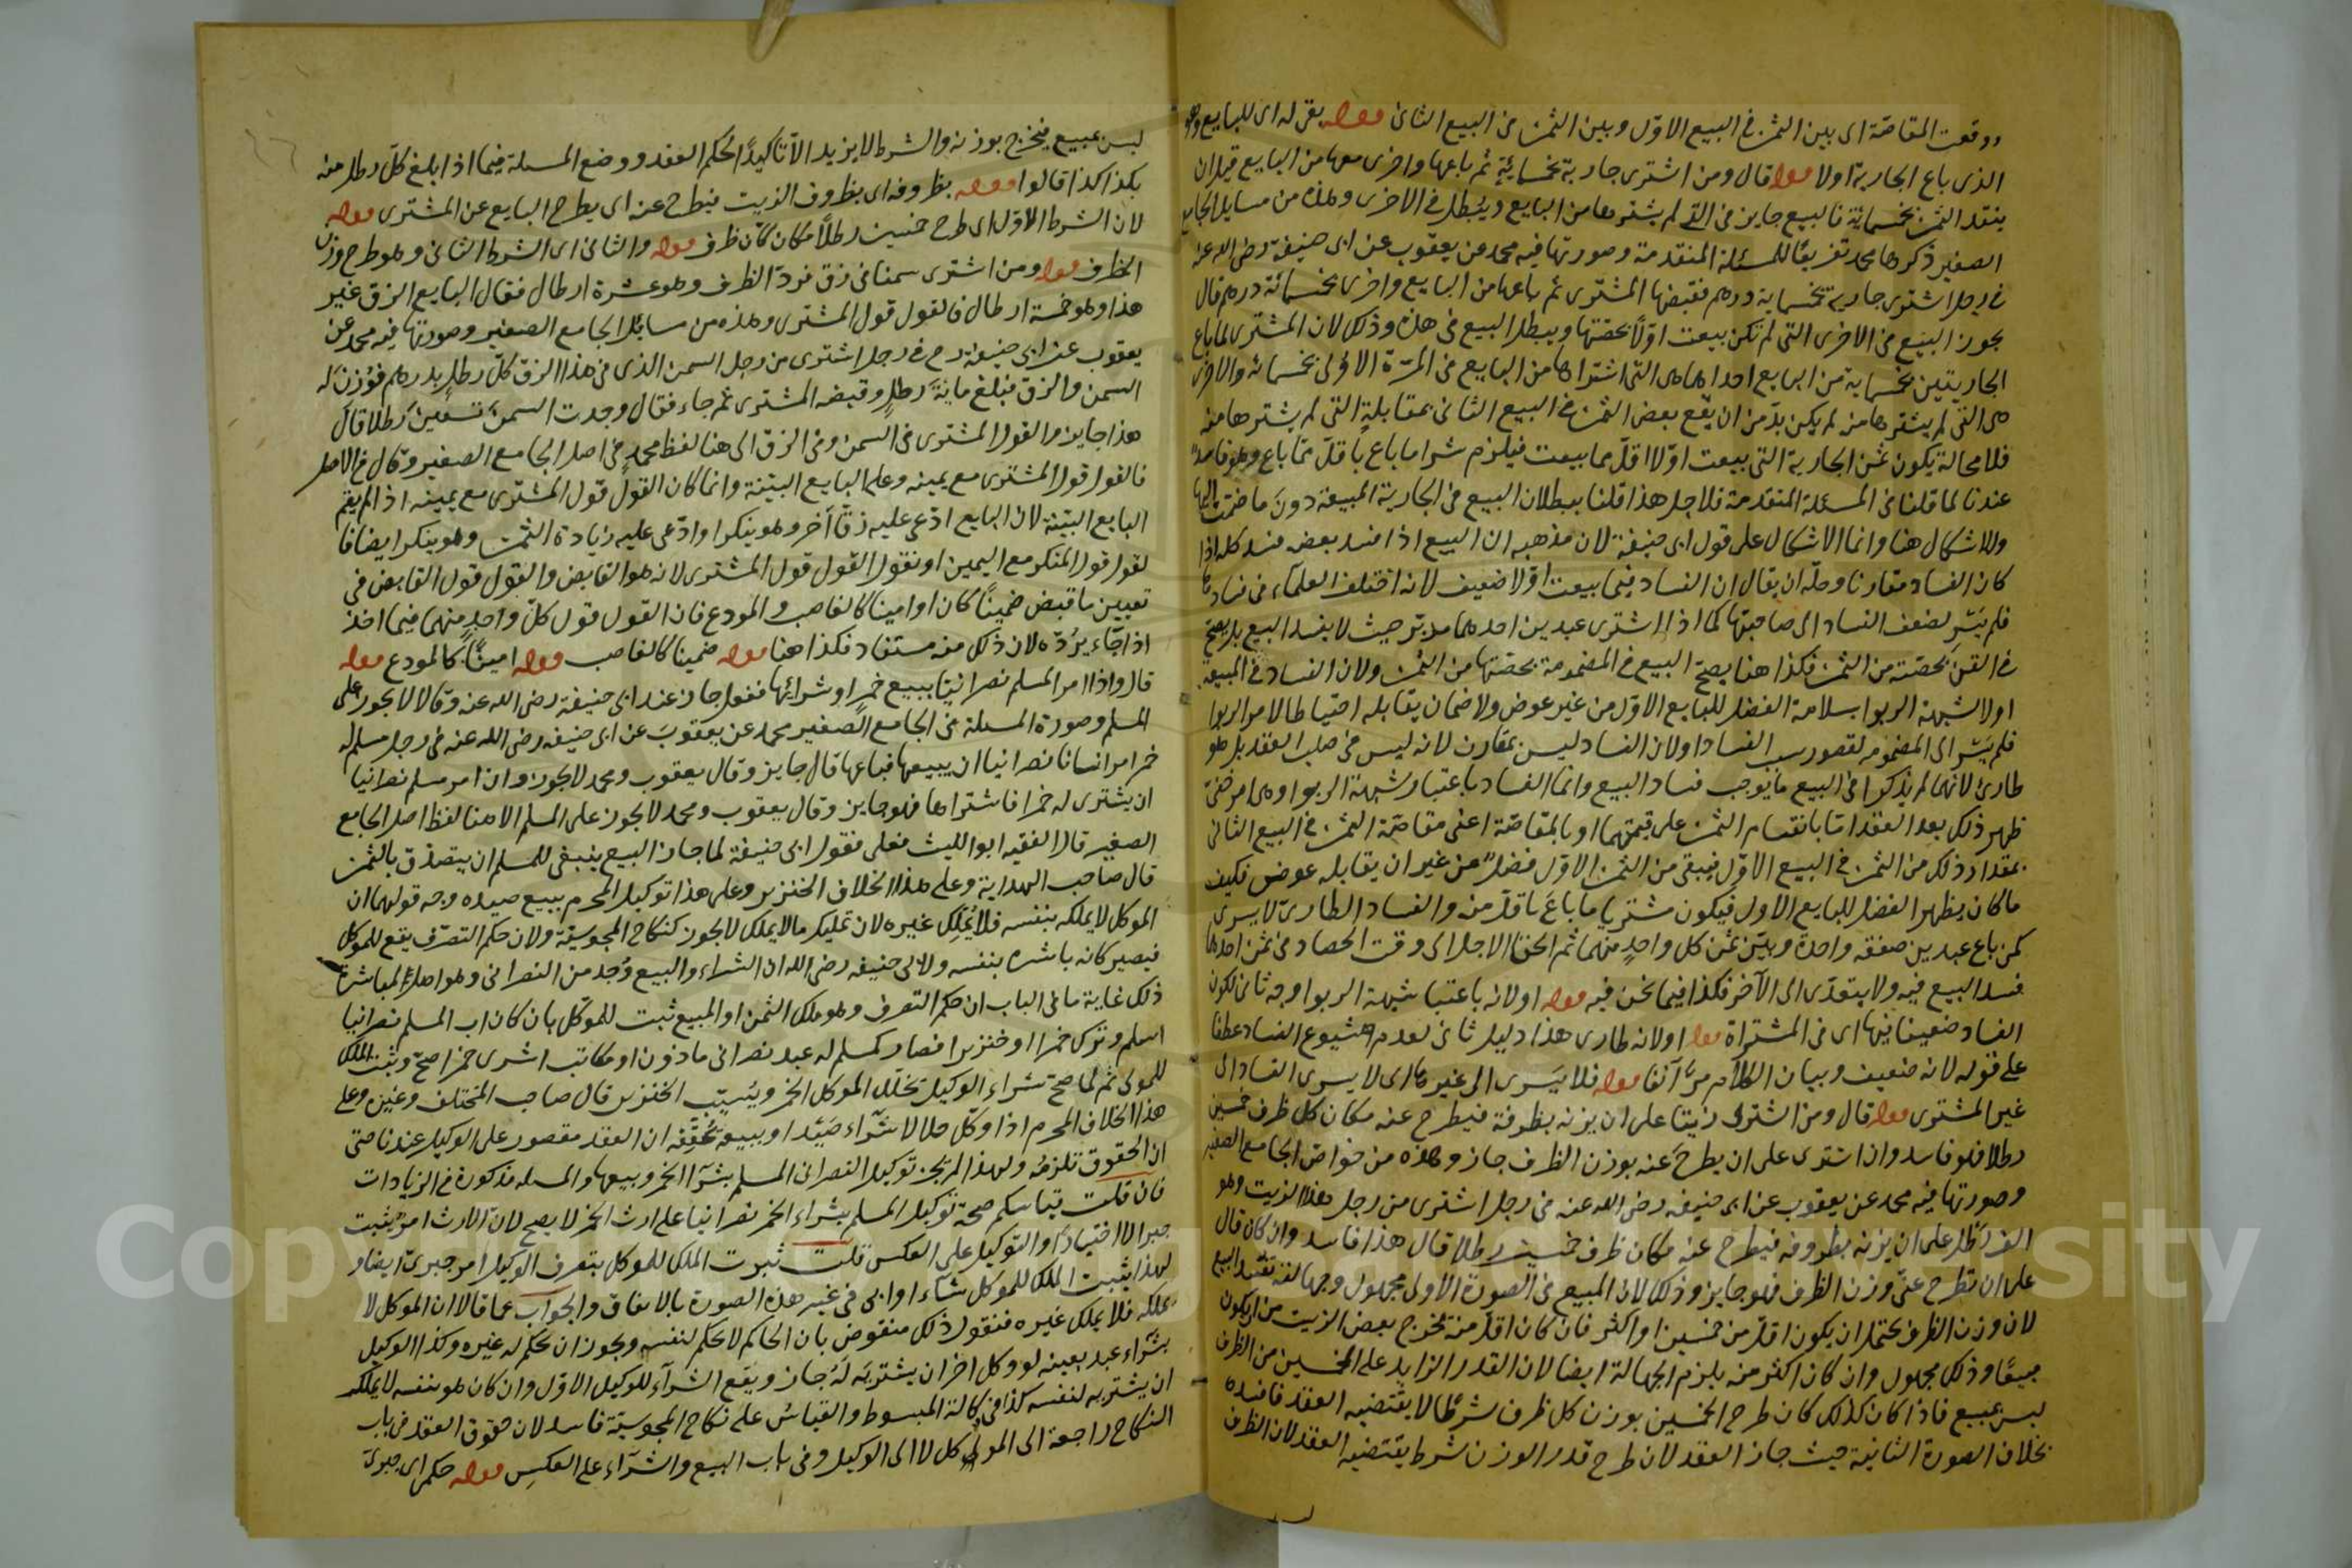 ووقعت المقاصة اى بين الثمن فى البيع الاول وبين الثمن فى البيع الثانى قوله بقى له اى للبايع وهو
الذى باع الجارية اولا قوله قال ومن اشترى جارية بخمسمائة ثم باعها واخرى معها من البايع قبل ان
ينقد الثمن بخمسمائة فالبيع جايز فى التى لم يشترها من البايع ويبطل فى الاخرى وهذه من مسايل الجامع
الصغير ذكرها محمد تفريعًا للمسئلة المتقدمة وصورتها فيه محمد عن يعقوب عن ابى حنيفة رضى الله عنه
فى رجل اشترى جارية بخمسماية درهم فقبضها المشترى ثم باعها من البايع واخرى بخمسمائة درهم قال
يجوز البيع فى الاخرى التى لم تكن بيعت اولًا بحصتها ويبطل البيع فى هذه وذلك لان المشترى لما باع
الجاريتين بخمسماية من البايع احداهما هى التى اشتراها من البايع فى المرّة الاولى بخمسمائة والاخرى
هى التى لم يشترها منه لم يكن بدّ من ان يقع بعض الثمن فى البيع الثانى بمقابلة التى لم يشترها منه
فلا محالة يكون ثمن الجارية التى بيعت اولا اقلّ مما بيعت فيلزم شرا ما باع باقلّ ممّا باع وهو فاسد
عندنا لما قلنا فى المسئلة المتقدمة فلاجل هذا قلنا ببطلان البيع فى الجارية المبيعة دون ما ضمّت اليها
ولا اشكال هنا وانما الاشكال على قول ابى حنيفة لان مذهبه ان البيع اذا فسد بعضه فسد كله اذا
كان الفساد مقارنا وحلّه ان يقال ان الفساد فيما بيعت اوّلا ضعيف لانه اختلف العلماء فى فسادها
فلم يَسْرِ لضعف الفساد الى صاحبتها كما اذا اشترى عبدين احدهما مدبّر حيث لا يفسد البيع بل يصحّ
فى القنّ بحصّته من الثمن فكذا هنا يصحّ البيع فى المضمومة بحصتها من الثمن ولان الفساد فى المبيعة
اولا لشبهة الربوا بسلامة الفضل للبايع الاوّل من غير عوض ولا ضمان يقابله احتياطا لامر الربوا
فلم يَسْرِ الى المضمومه لقصور سبب الفساد اولان الفساد ليس بمقارن لانه ليس فى صلب العقد بل هو
طارئ لانهما لم يذكرا فى البيع ما يوجب فساد البيع وانما الفساد باعتبار شبهة الربوا وهى امر خفىّ
ظهر ذلك بعد العقد امّا بانقسام الثمن على قيمتهما او بالمقاصّة اعنى مقاصّة الثمن فى البيع الثانى
بمقدار ذلك من الثمن فى البيع الاوّل فيبقى من الثمن الاوّل فضل من غير ان يقابله عوض فكيف
ما كان يظهر الفضل للبايع الاول فيكون مشتريا ما باعَ باقلّ منه والفساد الطارى لا يسرى
كمن باع عبدين صفقة واحدة وبيّن ثمن كل واحدٍ منهما ثم الحقا الاجل الى وقت الحصاد فى ثمن احدهما
فسد البيع فيه ولا يتعدّى الى الآخر فكذا فيما نحن فيه قوله اولانه باعتبار شبهة الربوا وجه ثانى لكون
الفساد ضعيفا فيها اى فى المشتراة قوله اولانه طارى هذا دليل ثانى لعدم شيوع الفساد عطفا
على قوله لانه ضعيف وبيان الكلام مرّ آنفا قوله فلا يَسرى الى غيرها اى لا يسرى الفساد الى
غير المشترى قوله قال ومن اشترى زيتا على ان يزنه بظرفه فيطرح عنه مكان كل ظرف خمسين
رطلا فهو فاسد وان اشترى على ان يطرحَ عنه بوزن الظرف جاز وهذه من خواص الجامع الصغير
وصورتها فيه محمد عن يعقوب عن ابى حنيفه رضى الله عنه فى رجل اشترى من رجل هذا الزيت وهو
الف رطل على ان يزنه بظروفه فيطرح عنه مكان ظرف خمسين رطلا قال هذا فاسد وان كان قال
على ان تطرح عنّى وزن الظرف فهو جايز وذلك لان المبيع فى الصورة الاولى مجهول وجهالته تفسد البيع
لان وزن الظرف يحتمل ان يكون اقلّ من خمسين او اكثر فان كان اقلّ منه يخرج بعض الزيت من ان يكون
مبيعًا وذلك مجهول وان كان اكثر منه يلزم الجهالة ايضا لان القدر الزايد على الخمسين من الظرف
ليس بمبيع فاذا كان كذلك كان طرح الخمسين بوزن كل ظرف شرطًا لا يقتضيه العقد فافسده
بخلاف الصورة الثانية حيث جاز العقد لان طرح قدر الوزن شرط يقتضيه العقد لان الظرف
ليس
ليس بمبيع فيخرج بوزنه والشرط لا يزيد الاّ تاكيدًا لحكم العقد ووضع المسلة فيما اذا بلغ كلّ رطل منه
بكذا كذا قالوا قوله بظروفه اى بظروف الزيت فيطرح عنه اى يطرح البايع عن المشترى قوله
لان الشرط الاوّل اى طرح خمسين رطلًا مكان كل ظرف قوله والثانى اى الشرط الثانى وهو طرح وزن
الظرف قوله ومن اشترى سمنا فى زق فردّ الظرف وهو عشرة ارطال فقال البايع الزق غير
هذا وهو خمسة ارطال فالقول قول المشترى وهذه من مسائل الجامع الصغير وصورتها فيه محمد عن
يعقوب عن ابى حنيفة رح فى رجل اشترى من رجل السمن الذى فى هذا الزق كلّ رطلٍ بدرهم فوُزن له
السمن والزق فبلغ مايةَ رطلٍ وقبضه المشترى ثم جاء فقال وجدت السمن تسعين رطلا قال
هذا جايز والقول المشترى فى السمن وفى الزقّ الى هنا لفظ محمد فى اصل الجامع الصغير وقال فى الاصل
فالقول قول المشترى مع يمينه وعلى البايع البيّنة وانما كان القول قول المشترى مع يمينه اذا لم يقم
البايع البيّنة لان البايع ادّعى عليه زقًّا آخر وهو ينكر او ادّعى عليه زيادة الثمن وهو ينكر ايضا فا
لقول قول المنكر مع اليمين او نقول القول قول المشترى لانه هو القابض والقول قول القابض فى
تعيين ما قبض ضمينًا كان او امينا كالغاصب والمودع فان القول قول كلّ واحدٍ منهما فيما اخذ
اذا جاء يردّه لان ذلك منه مستفاد فكذا هنا قوله ضمينا كالغاصب قوله امينًا كالمودع قوله
قال واذا امر المسلم نصرانيًا ببيع خمرٍ او شرائها ففعل جاز عند ابى حنيفة رضى الله عنه وقالا لا يجوز على
المسلم وصورة المسلة فى الجامع الصغير محمد عن يعقوبَ عن ابى حنيفه رضى الله عنه فى رجل مسلم له
خمر امر انسانا نصرانيا ان يبيعها فباعها قال جايز وقال يعقوب ومحمد لا يجوز وان امر مسلم نصرانيا
ان يشترى له خمرا فاشتراها فهو جايز وقال يعقوب ومحمد لا يجوز على المسلم الى هنا لفظ اصل الجامع
الصغير قال الفقيه ابوالليث فعلى قول ابى حنيفة لما جاز البيع ينبغى للمسلم ان يتصدّق بالثمن
قال صاحب الهداية وعلى هذا الخلاف الخنزير وعلى هذا توكيل المحرم ببيع صيده وجه قولهما ان
الموكل لا يملكه بنفسه فلا يُملّك غيره لان تمليك مالا يملك لا يجوز كنكاح المجوسيّة ولان حكم التصرّف يقع للموكل
فيصير كانه باشره بنفسه ولابى حنيفه رضى الله ان الشراء والبيع وُجد من النصرانى وهو اهل لمباشرة
ذلك غاية ما فى الباب ان حكم التصرف وهو ملك الثمن او المبيع ثبت للموكّل بان كان اب المسلم نصرانيا
اسلم وترك خمرا او خنزيرا فصار كمسلم له عبد نصرانى ماذون او مكاتب اشترى خمرا صحّ وثبت الملك
للمولى ثم لما صحّ شراء الوكيل تخلّل الموكل الخمر ويُسيّب الخنزير قال صاحب المختلف وغيره وعلى
هذا الخلاف المحرم اذا وكّل حلالا شراء صَيْد او ببيعه تحقيقه ان العقد مقصور على الوكيل عندنا حتى
ان الحقوق تلزمه ولهذا لم يجز توكيل النصرانى المسلم بشرآء الخمر وبيعها والمسله مذكورة فى الزيادات
فان قلت قياسكم صحة توكيل المسلم بشراء الخمر نصرانيا على ارث الخمر لا يصح لان الارث امر يثبت
جبرا لا اختيارًا والتوكيل على العكس قلت ثبوت الملك للموكل بتصرف الوكيل امر جبرىّ ايضا و
لهذا يثبت الملك للموكل شآء او ابى فى غير هذه الصورة بالاتفاق والجواب عما قالا ان الموكل لا
يملكه فلا يملك غيره فنقول ذلك منقوض بان الحاكم لا يحكم لنفسه ويجوز ان يحكم له غيره وكذا الوكيل
بشراء عبد بعينه لو وكل اخر ان يشتريَه لَهُ جاز ويقع الشرآء للوكيل الاوّل وان كان هو بنفسه لا يملك
ان يشتريه لنفسه كذا فى وكالة المبسوط والقياسُ على نكاح المجوسيّة فاسد لان حقوق العقد فى باب
النكاح راجعة الى الموكل لا الى الوكيل وفى باب البيع والشرآء على العكس قوله حكمى اى جبرىّ
Copyright © King Saud University